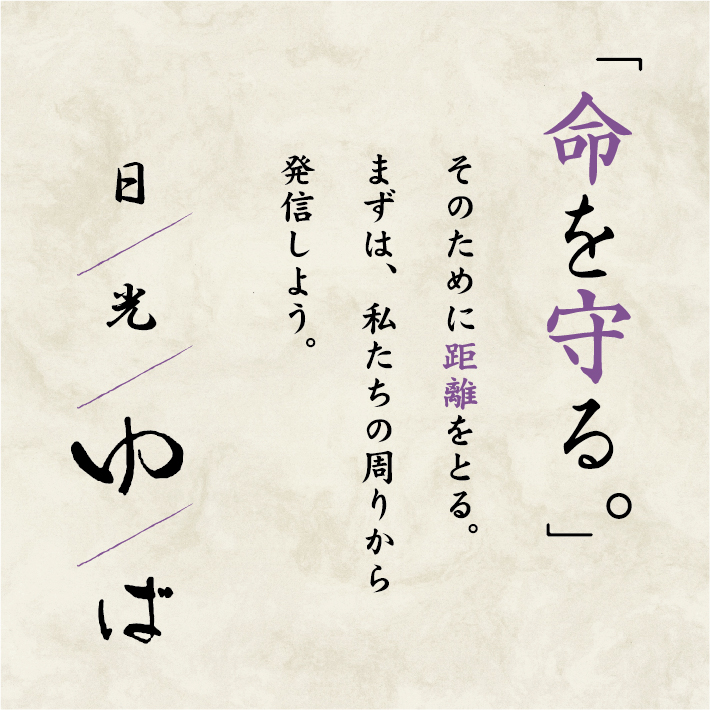 「命を守る。」
そのために距離をとる。
まずは、私たちの周りから
発信しよう。
日/光/ゆ/ば